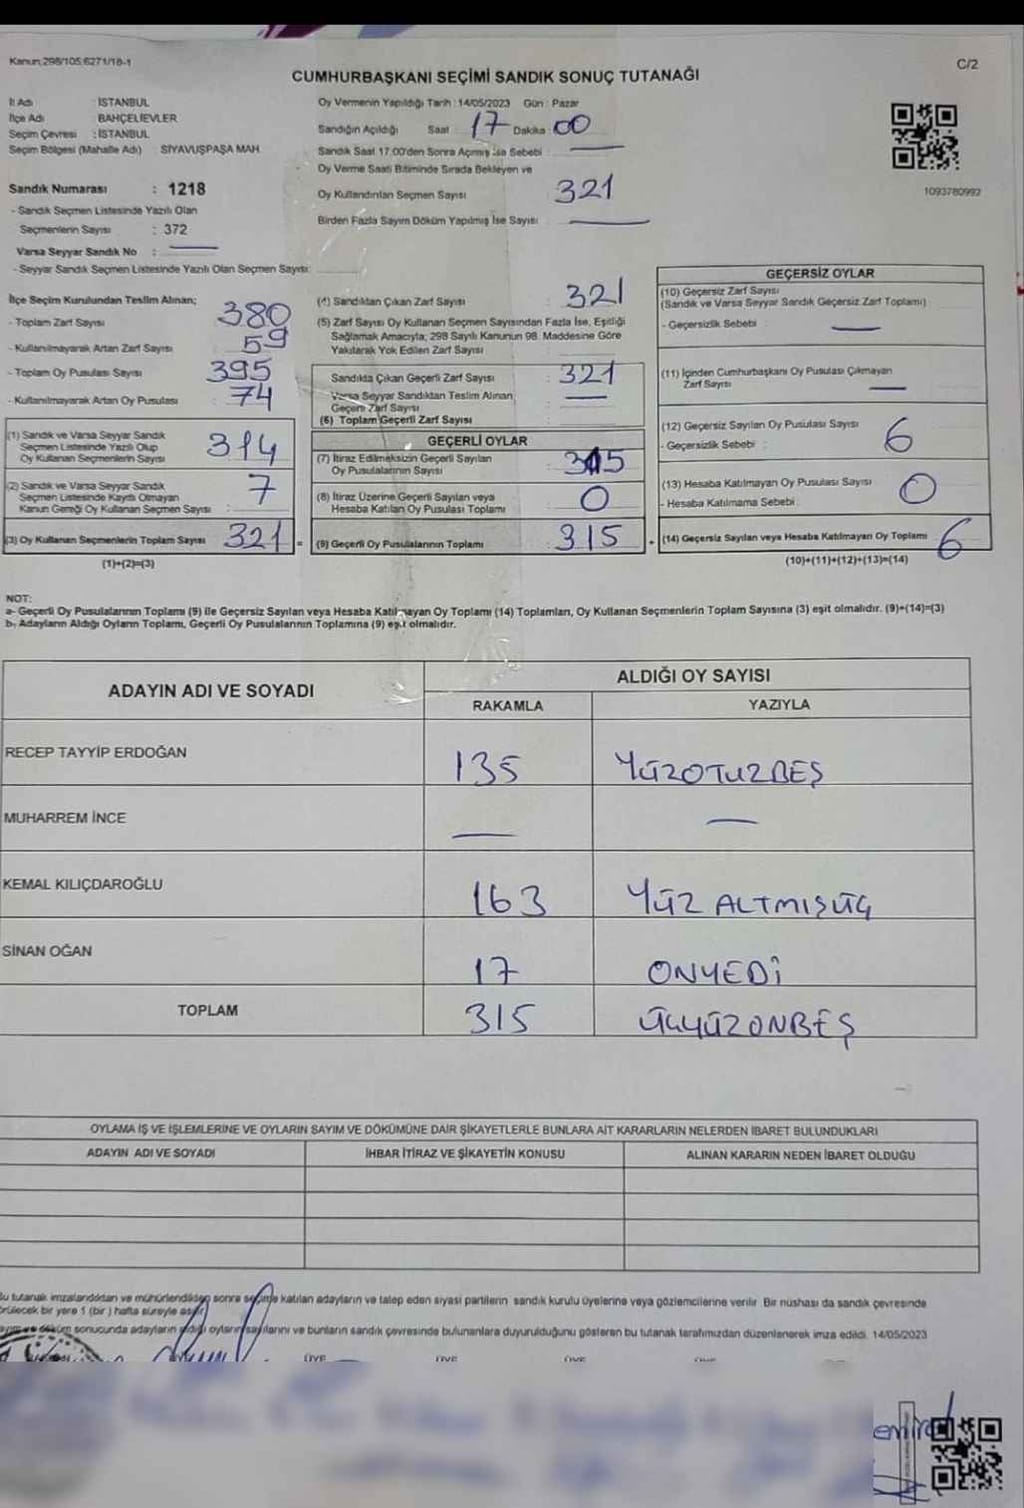 Kanun:298/105;6271/18-1
C/2
CUMHURBAŞKANI SEÇİMİ SANDIK SONUÇ TUTANAĞI
İl Adı : İSTANBUL
İlçe Adı : BAHÇELİEVLER
Seçim Çevresi : İSTANBUL
Seçim Bölgesi (Mahalle Adı) : SİYAVUŞPAŞA MAH.
Sandık Numarası : 1218
- Sandık Seçmen Listesinde Yazılı Olan
Seçmenlerin Sayısı : 372
Varsa Seyyar Sandık No : —
- Seyyar Sandık Seçmen Listesinde Yazılı Olan Seçmen Sayısı:
Oy Vermenin Yapıldığı Tarih : 14/05/2023 Gün : Pazar
Sandığın Açıldığı Saat 17 Dakika : 00
Sandık Saat 17:00'den Sonra Açılmış İse Sebebi : —
Oy Verme Saati Bitiminde Sırada Bekleyen ve
Oy Kullandırılan Seçmen Sayısı 321
Birden Fazla Sayım Döküm Yapılmış İse Sayısı : —
1093780992
İlçe Seçim Kurulundan Teslim Alınan;
- Toplam Zarf Sayısı 380
- Kullanılmayarak Artan Zarf Sayısı 59
- Toplam Oy Pusulası Sayısı 395
- Kullanılmayarak Artan Oy Pusulası 74
(1) Sandık ve Varsa Seyyar Sandık
Seçmen Listesinde Yazılı Olup
Oy Kullanan Seçmenlerin Sayısı 314
(2) Sandık ve Varsa Seyyar Sandık
Seçmen Listesinde Kaydı Olmayan
Kanun Gereği Oy Kullanan Seçmen Sayısı : 7
(3) Oy Kullanan Seçmenlerin Toplam Sayısı 321 =
(1)+(2)=(3)
(4) Sandıktan Çıkan Zarf Sayısı : 321
(5) Zarf Sayısı Oy Kullanan Seçmen Sayısından Fazla İse, Eşitliği
Sağlamak Amacıyla, 298 Sayılı Kanunun 98. Maddesine Göre
Yakılarak Yok Edilen Zarf Sayısı
Sandıkta Çıkan Geçerli Zarf Sayısı : 321
Varsa Seyyar Sandıktan Teslim Alınan
Geçerli Zarf Sayısı : —
(6) Toplam Geçerli Zarf Sayısı
GEÇERLİ OYLAR
(7) İtiraz Edilmeksizin Geçerli Sayılan
Oy Pusulalarının Sayısı : 315
(8) İtiraz Üzerine Geçerli Sayılan veya
Hesaba Katılan Oy Pusulası Toplamı : 0
(9) Geçerli Oy Pusulalarının Toplamı : 315 +
GEÇERSİZ OYLAR
(10) Geçersiz Zarf Sayısı
(Sandık ve Varsa Seyyar Sandık Geçersiz Zarf Toplamı) :
- Geçersizlik Sebebi : —
(11) İçinden Cumhurbaşkanı Oy Pusulası Çıkmayan
Zarf Sayısı —
(12) Geçersiz Sayılan Oy Pusulası Sayısı
- Geçersizlik Sebebi : 6
(13) Hesaba Katılmayan Oy Pusulası Sayısı :
- Hesaba Katılmama Sebebi : 0
(14) Geçersiz Sayılan veya Hesaba Katılmayan Oy Toplamı 6
(10)+(11)+(12)+(13)=(14)
NOT:
a- Geçerli Oy Pusulalarının Toplamı (9) ile Geçersiz Sayılan veya Hesaba Katılmayan Oy Toplamı (14) Toplamları, Oy Kullanan Seçmenlerin Toplam Sayısına (3) eşit olmalıdır. (9)+(14)=(3)
b- Adayların Aldığı Oyların Toplamı, Geçerli Oy Pusulalarının Toplamına (9) eşit olmalıdır.
ADAYIN ADI VE SOYADI
ALDIĞI OY SAYISI
RAKAMLA YAZIYLA
RECEP TAYYİP ERDOĞAN 135 YÜZOTUZBEŞ
MUHARREM İNCE — —
KEMAL KILIÇDAROĞLU 163 YÜZ ALTMIŞÜÇ
SİNAN OĞAN 17 ONYEDİ
TOPLAM 315 ÜÇYÜZONBEŞ
OYLAMA İŞ VE İŞLEMLERİNE VE OYLARIN SAYIM VE DÖKÜMÜNE DAİR ŞİKAYETLERLE BUNLARA AİT KARARLARIN NELERDEN İBARET BULUNDUKLARI
ADAYIN ADI VE SOYADI İHBAR İTİRAZ VE ŞİKAYETİN KONUSU ALINAN KARARIN NEDEN İBARET OLDUĞU
Bu tutanak imzalandıktan ve mühürlendikten sonra seçime katılan adayların ve talep eden siyasi partilerin sandık kurulu üyelerine veya gözlemcilerine verilir. Bir nüshası da sandık çevresinde
görülecek bir yere 1 (bir) hafta süreyle asılır.
Sayım ve döküm sonucunda adayların aldığı oyların sayılarını ve bunların sandık çevresinde bulunanlara duyurulduğunu gösteren bu tutanak tarafımızdan düzenlenerek imza edildi. 14/05/2023
ÜYE ÜYE ÜYE ÜYE